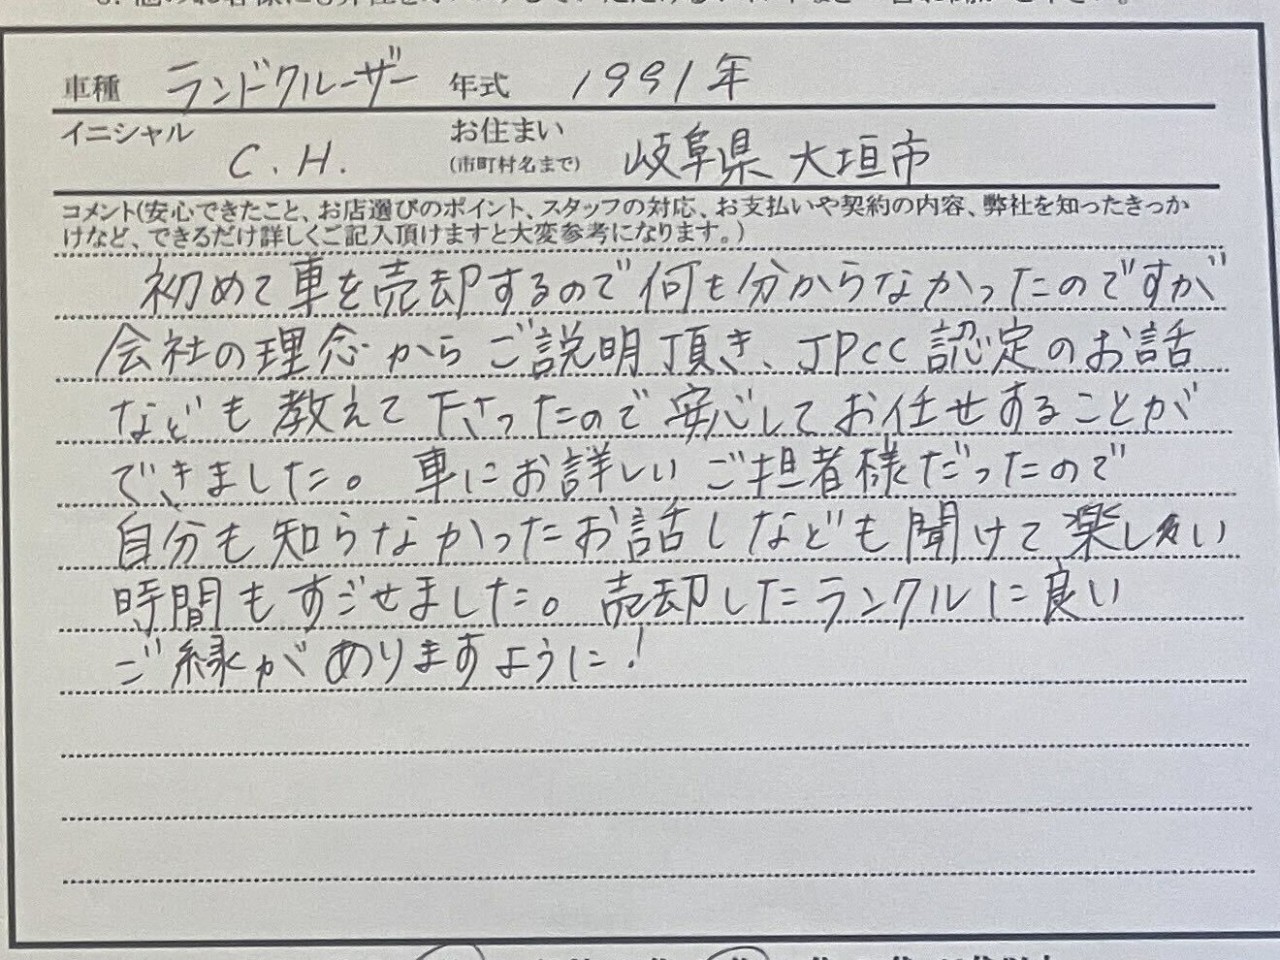 車種 ランドクルーザー 年式 1991年
イニシャル C.H. お住まい(市町村名まで) 岐阜県 大垣市
コメント(安心できたこと、お店選びのポイント、スタッフの対応、お支払いや契約の内容、弊社を知ったきっか
けなど、できるだけ詳しくご記入頂けますと大変参考になります。)
初めて車を売却するので何も分からなかったのですが
会社の理念からご説明頂き、JPCC認定のお話
なども教えて下さったので安心してお任せすることが
できました。車にお詳しいご担当者様だったので
自分も知らなかったお話しなども聞けて楽しい
時間もすごせました。売却したランクルに良い
ご縁がありますように!